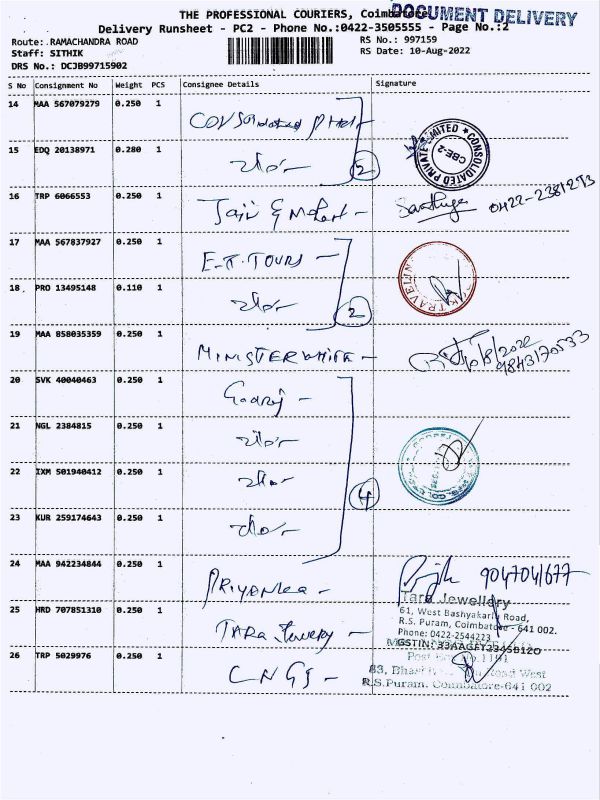 DOCUMENT DELIVERY
THE PROFESSIONAL COURIERS, Coimbatore
Delivery Runsheet - PC2 - Phone No.:0422-3505555 - Page No.:2
Route: RAMACHANDRA ROAD
RS No.: 997159
Staff: SITHIK
RS Date: 10-Aug-2022
DRS No.: DCJB99715902
S No Consignment No Weight PCS Consignee Details Signature
14 MAA 567079279 0.250 1 Consolidated
CONSOLIDATED PRIVATE LIMITED CBE-2
15 EDQ 20138971 0.280 1 2
16 TRP 6066553 0.250 1
0422-2381293
17 MAA 567837927 0.250 1 E.T. TOURS
18 PRO 13495148 0.110 1 2
19 MAA 858035359 0.250 1 MINISTERWHITE
10/8/2022
9843170533
20 SVK 40040463 0.250 1 Godrej
21 NGL 2384815 0.250 1
22 IXM 501940412 0.250 1 4
23 KUR 259174643 0.250 1
24 MAA 942234844 0.250 1 PRIYANKA
9047041677
25 HRD 707851310 0.250 1 TARA Jewelery
Tara Jewellery
61, West Bashyakarlu Road,
R.S. Puram, Coimbatore - 641 002.
Phone: 0422-2544223
26 TRP 5029976 0.250 1 CNGS
83, Road West
R.S.Puram, Coimbatore-641 002